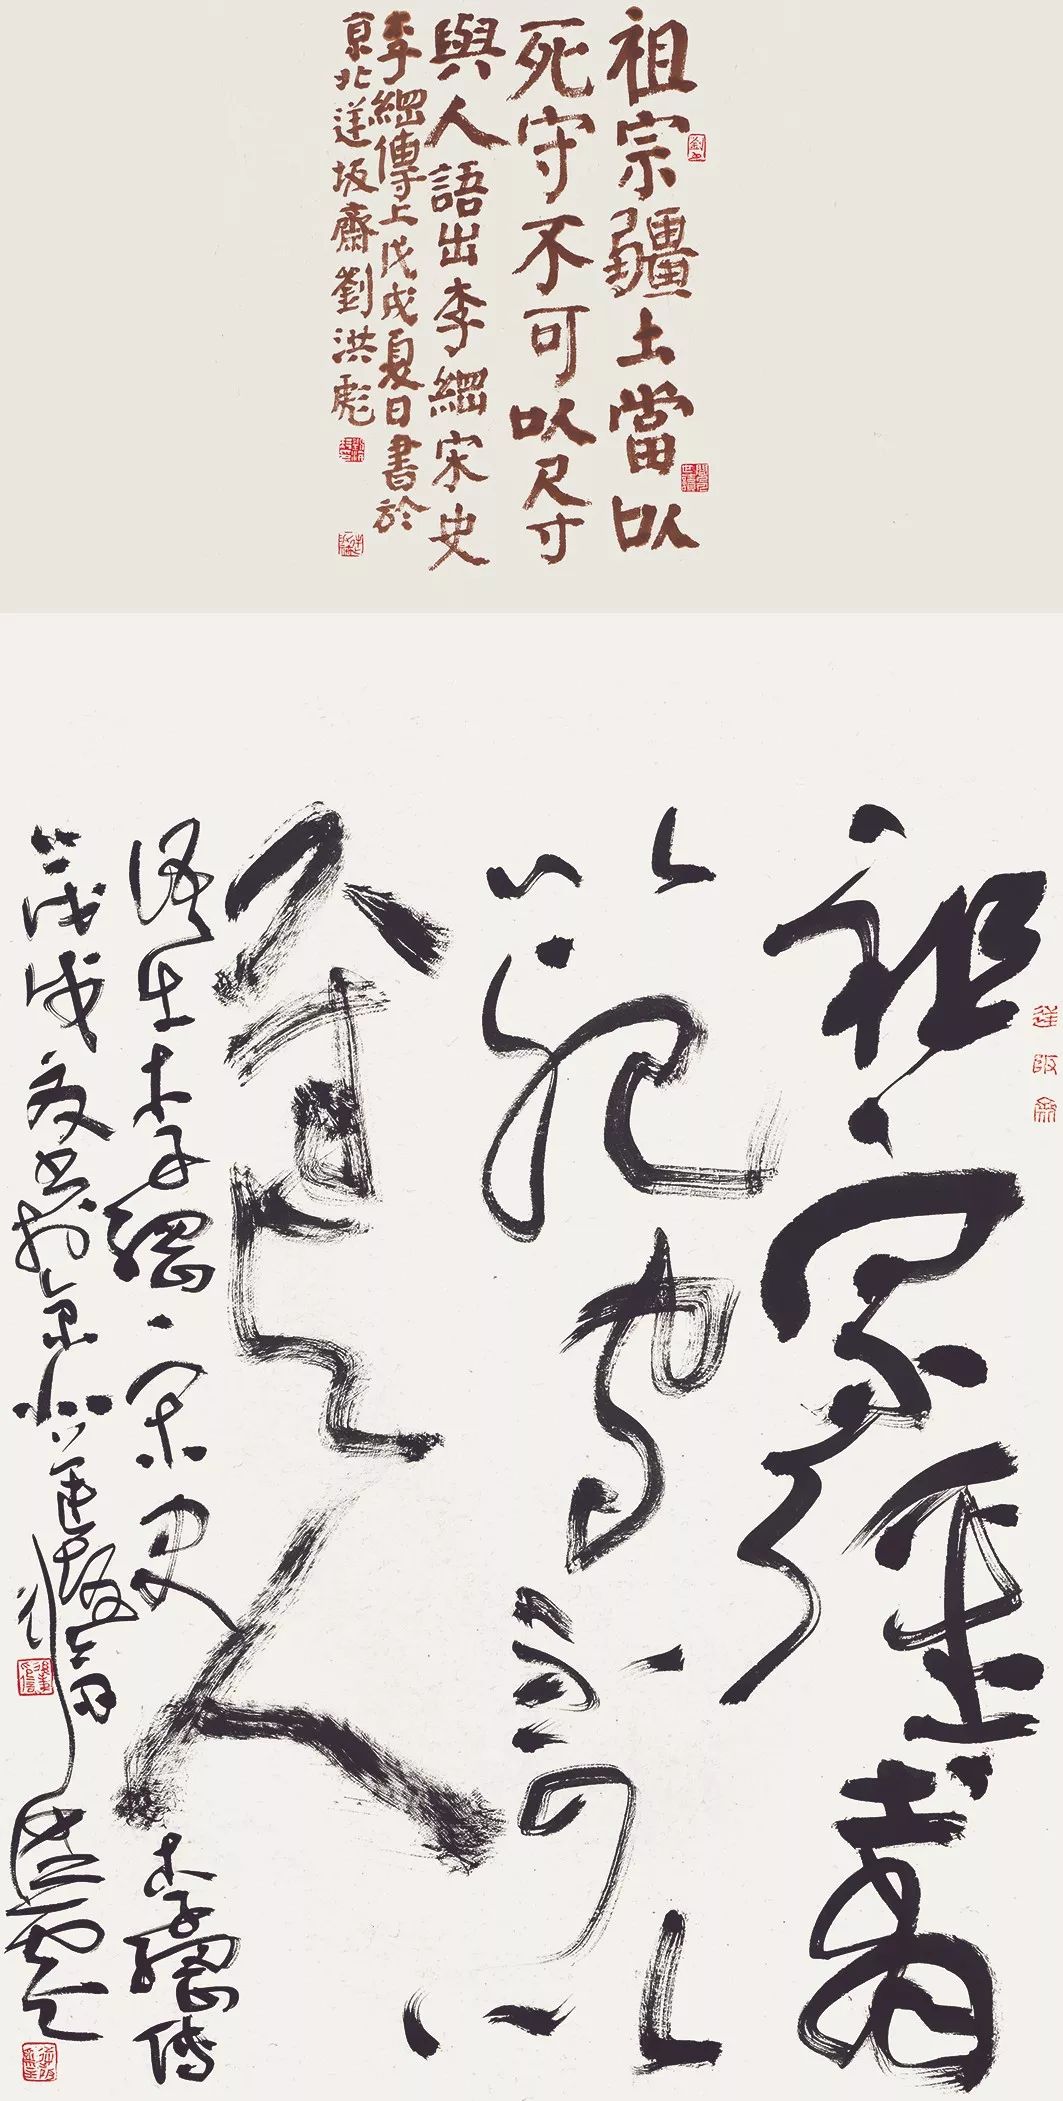 祖宗疆土當以
死守不可以尺寸
與人語出李綱宋史
李綱傳上戊戌夏日書於
京北蓬坂齋劉洪彪
祖宗疆土當
以死守不可以
尺寸與人
語出李綱宋史李綱傳
戊戌夏書於京北